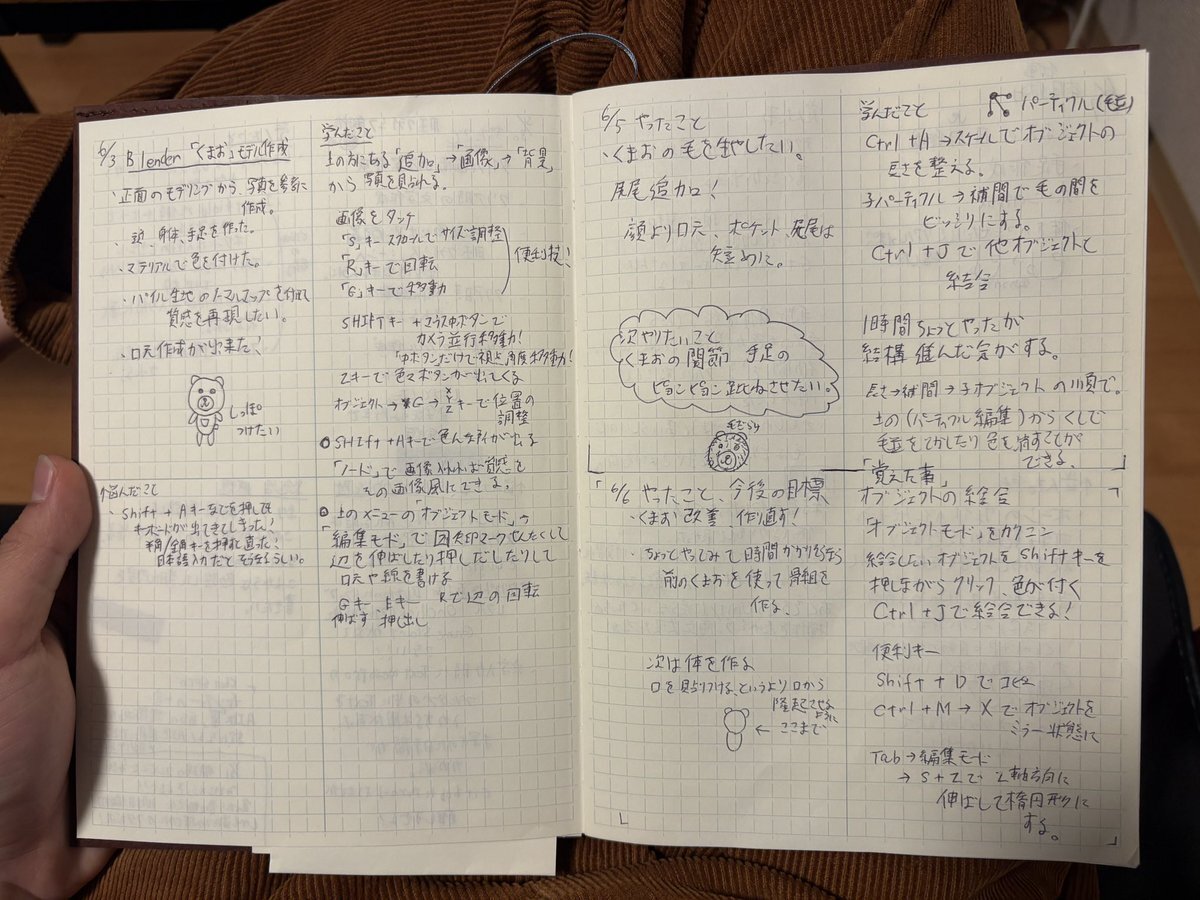 6/3 Blender「くまお」モデル作成
・正面のモデリングから、写真を参考に
作成。
・頭、身体、手足を作った。
・マテリアルで色を付けた。
・パイル生地のノーマルマップを付けて
質感を再現したい。
・口元作成が出来た!
しっぽ
つけたい
悩んだこと
・Shift + Aキーなどを押しても
キーボードが出てきてしまった!
半角/全角キーを押すと直った!
日本語入力だと らしい。
学んだこと
上の方にある「追加」→「画像」→「背景」
から写真を貼られる。
画像をタッチ
「S」キー スクロールでサイズ調整
「R」キーで回転
「G」キーで移動
便利技!
SHIFTキー + マウス中ボタンで
カメラ並行移動!
「中ボタンだけで視点角度移動!
Zキーで色々ボタンが出てくる
オブジェクト→G→XYZキーで位置の
調整
●SHIFT+Aキーで色んな形が出る
「ノード」で画像入れれば質感を
その画像風にできる。
●上のメニューの「オブジェクトモード」→
「編集モード」で 矢印マークせんたくして
辺を伸ばしたり押しだしたりして
口元や線を書ける
Gキー、Eキー Rで辺の回転
伸ばす 押し出し
6/5 やったこと
・くまおの毛を生やしたい。
尻尾追加!
顔より口元、ポケット、尻尾は
短めに。
次やりたいこと
くまおの関節 手足の
ピョンピョン跳ねさせたい。
毛むくじゃら
学んだこと
パーティクル(毛並)
Ctrl+A→スケールでオブジェクトの
長さを整える。
子パーティクル→補間で毛の間を
ビッシリにする。
Ctrl+Jで他オブジェクトと
結合
1時間ちょっとやったが
結構進んだ気がする。
長さ→補間→子オブジェクトの順で。
上の(パーティクル編集)からくしで
毛並をとかしたり色を消すことが
できる。
6/6 やったこと、今後の目標
・くまお改善、作り直す!
・ちょっとやってみて時間かかりそうなら
前のくまおを使って骨組を
作る。
次は体を作る
口を貼りつける、というより口から
隆起させる
ように
← ここまで
「覚えた事」
オブジェクトの結合
「オブジェクトモード」をカクニン
結合したいオブジェクトをShiftキーを
押しながらクリック、色が付く
Ctrl+Jで結合できる!
便利キー
Shift+Dでコピー
Ctrl+M→Xでオブジェクトを
ミラー状態に
Tab→編集モード
→S+ZでZ軸方向に
伸ばして楕円形に
する。